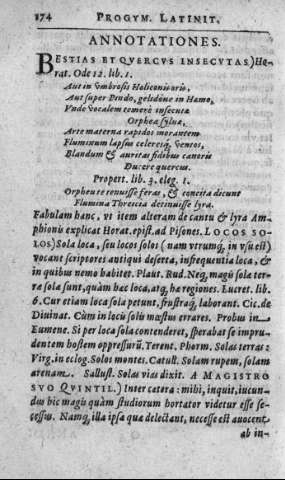 174 PROGYM. LATINIT.
ANNOTATIONES.
BESTIAS ET QVERCVS INSECVTAS.) Ho-
rat. Ode 12. lib. 1.
Aut in vmbrosis Heliconis oris,
Aut super Pindo, gelidóue in Hæmo,
Vnde vocalem temerè insecutæ
Orphea syluæ,
Arte materna rapidos morantem
Fluminum lapsus celeresq́; ventos,
Blandum & auritas fidibus canoris
Ducere quercus.
Propert. lib. 3. eleg. 1.
Orpheu te tenuisse feras, & concita dicunt
Flumina Threicia detinuisse lyra.
Fabulam hanc, vt item alteram de cantu & lyra Am-
phionis explicat Horat. epist. ad Pisones. LOCOS SO-
LOS) Sola loca, seu locos solos (nam vtrumq́; in vsu est)
vocant scriptores antiqui deserta, infrequentia loca, &
in quibus nemo habitet. Plaut. Rud. Neq; magis sola ter-
ræ sola sunt, quàm hæc loca, atq; hæ regiones. Lucret. lib.
6. Cur etiam loca sola petunt, frustraq́; laborant. Cic. de
Diuinat. Cùm in locis solis mœstus errares. Probus in
Eumene. Si per loca sola contenderet, sperabat se impru-
dentem hostem oppressurū. Terent. Phorm. Solas terras:
Virg. in eclog. Solos montes. Catull. Solam rupem, solam
arenam. Sallust. Solas vias dixit. A MAGISTRO
SVO QVINTIL.) Inter cætera: mihi, inquit, iucun-
dus hic magis quàm studiorum hortator videtur esse se-
cessus. Namq́; illa ipsa quæ delectant, necesse est auocent
ab in-